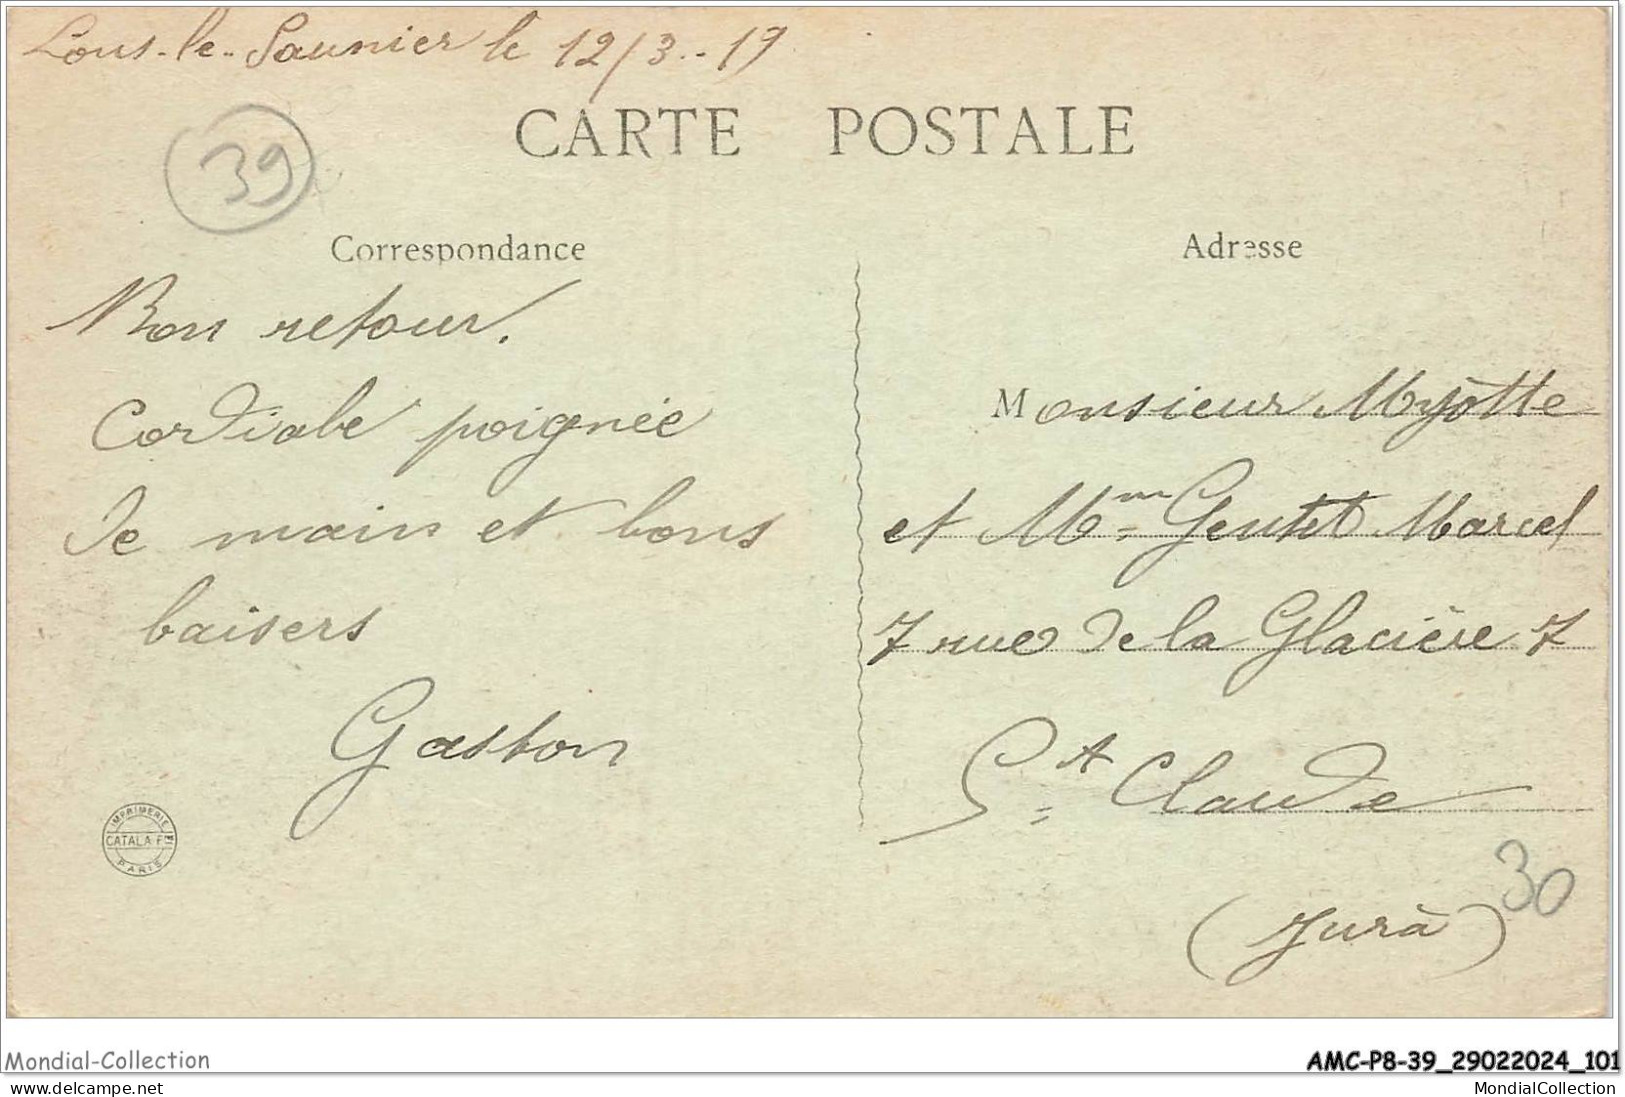 Lons-le-Saunier le 12/3.-19
CARTE POSTALE
39
Correspondance
Bon retour.
Cordiale poignée
de main et bons
baisers
Gaston
IMPRIMERIE
CATALA F
PARIS
Adresse
Monsieur Myotte
et Mme Gentet Marcel
7 rue de la Glacière 7
St Claude
(Jura)
30
Mondial-Collection
AMC-P8-39_29022024_101
www.delcampe.net
MondialCollection